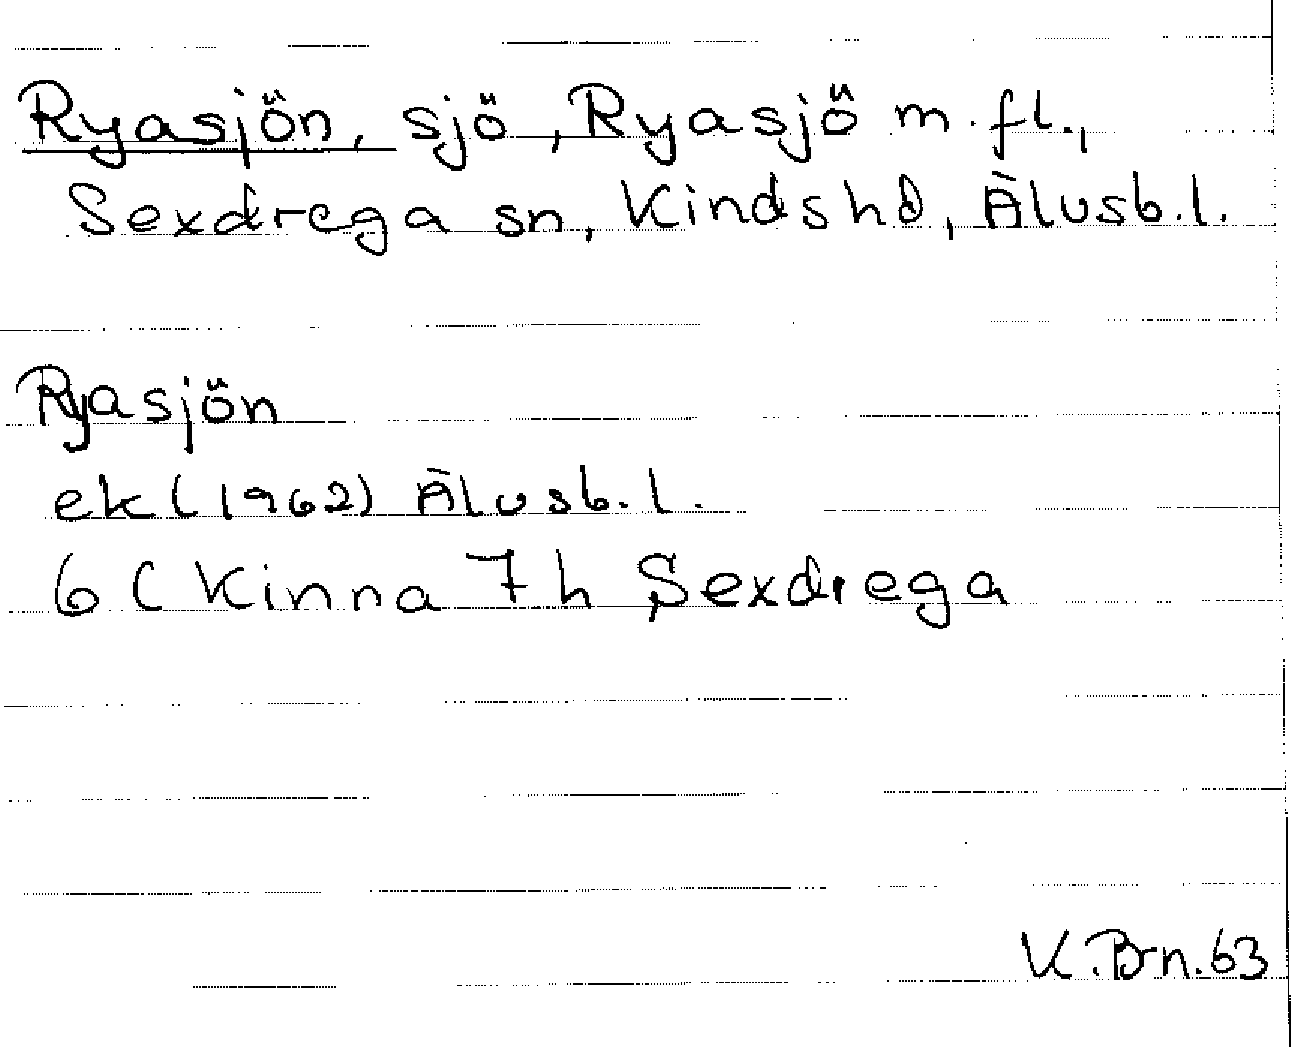 Ryasjön, sjö, Ryasjö m.fl.,
Sexdrega sn, Kinds hd, Älvsb.l.
Ryasjön
ek (1962) Älvsb.l.
6 C Kinna 7 h Sexdrega
K.Brn.63